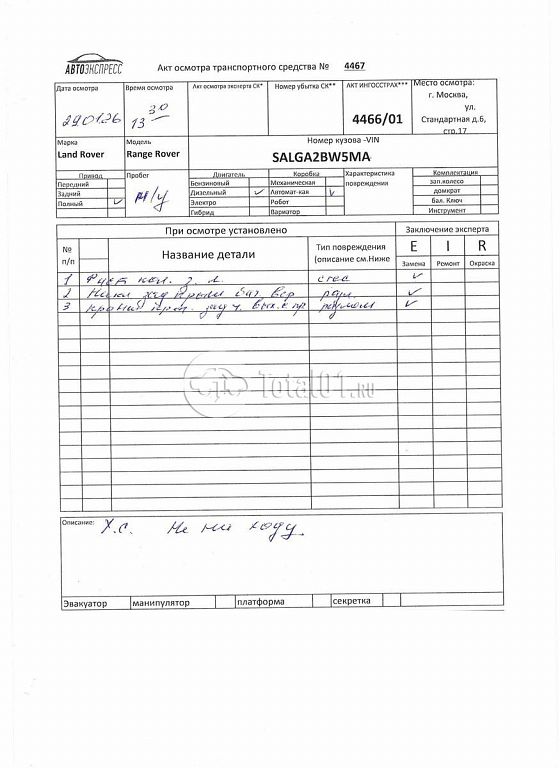 АВТОЭКСПРЕСС
Акт осмотра транспортного средства № 4467
Дата осмотра Время осмотра Акт осмотра эксперта СК* Номер убытка СК** АКТ ИНГОССТРАХ*** Место осмотра:
29.01.26 13 30 4466/01 г. Москва,
ул.
Стандартная д.6,
стр.17
Марка Модель Номер кузова -VIN
Land Rover Range Rover SALGA2BW5MA
Привод Пробег Двигатель Коробка Характеристика повреждения Комплектация
Передний Бензиновый Механическая зап.колесо
Задний н/у Дизельный Автомат-кая домкрат
Полный Электро Робот бал. Ключ
Гибрид Вариатор Инструмент
При осмотре установлено Заключение эксперта
№ п/п Название детали Тип повреждения (описание см.Ниже E I R
Замена Ремонт Окраска
1 з. л.
2
3
Total01.RU
Описание: Х.С. Не на ходу.
Эвакуатор манипулятор платформа секретка